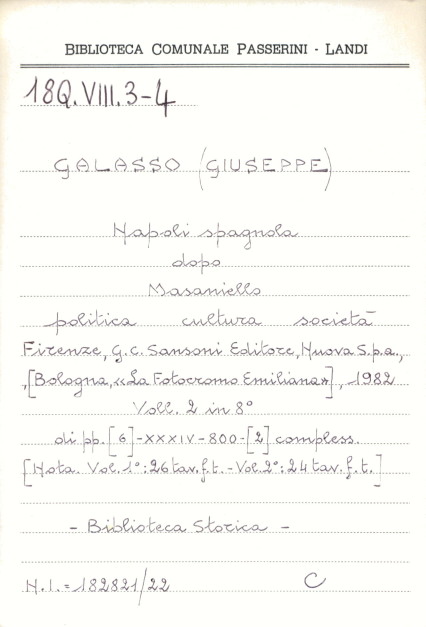 BIBLIOTECA COMUNALE PASSERINI - LANDI
18Q.VIII.3-4
GALASSO (GIUSEPPE)
Napoli spagnola
dopo
Masaniello
politica cultura società
Firenze, G.C. Sansoni Editore, Nuova S.p.a.,
,[Bologna, «La Fotocromo Emiliana»], 1982
Voll. 2 in 8°
di pp. [6]-XXXIV-800-[2] compless.
[Nota. Vol. 1°: 26 tav.f.t. - Vol. 2°: 24 tav.f.t.]
- Biblioteca Storica -
N.I. = 182821/22 C